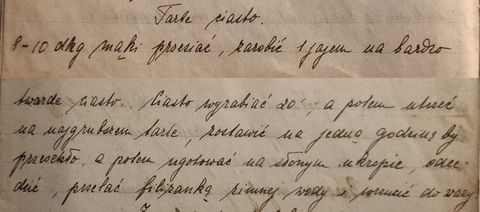 Tarte ciasto.
8-10 dkg mąki przesiać, zarobić 1 jajem na bardzo
twarde ciasto. Ciasto wyrabiać 20', a potem utrzeć
na najgrubszem tarle, zostawić na jedną godzinę by
przeschło, a potem ugotować na słonym ukropie, odce-
dzić, przelać filiżanką zimnej wody i wrzucić do wazy.